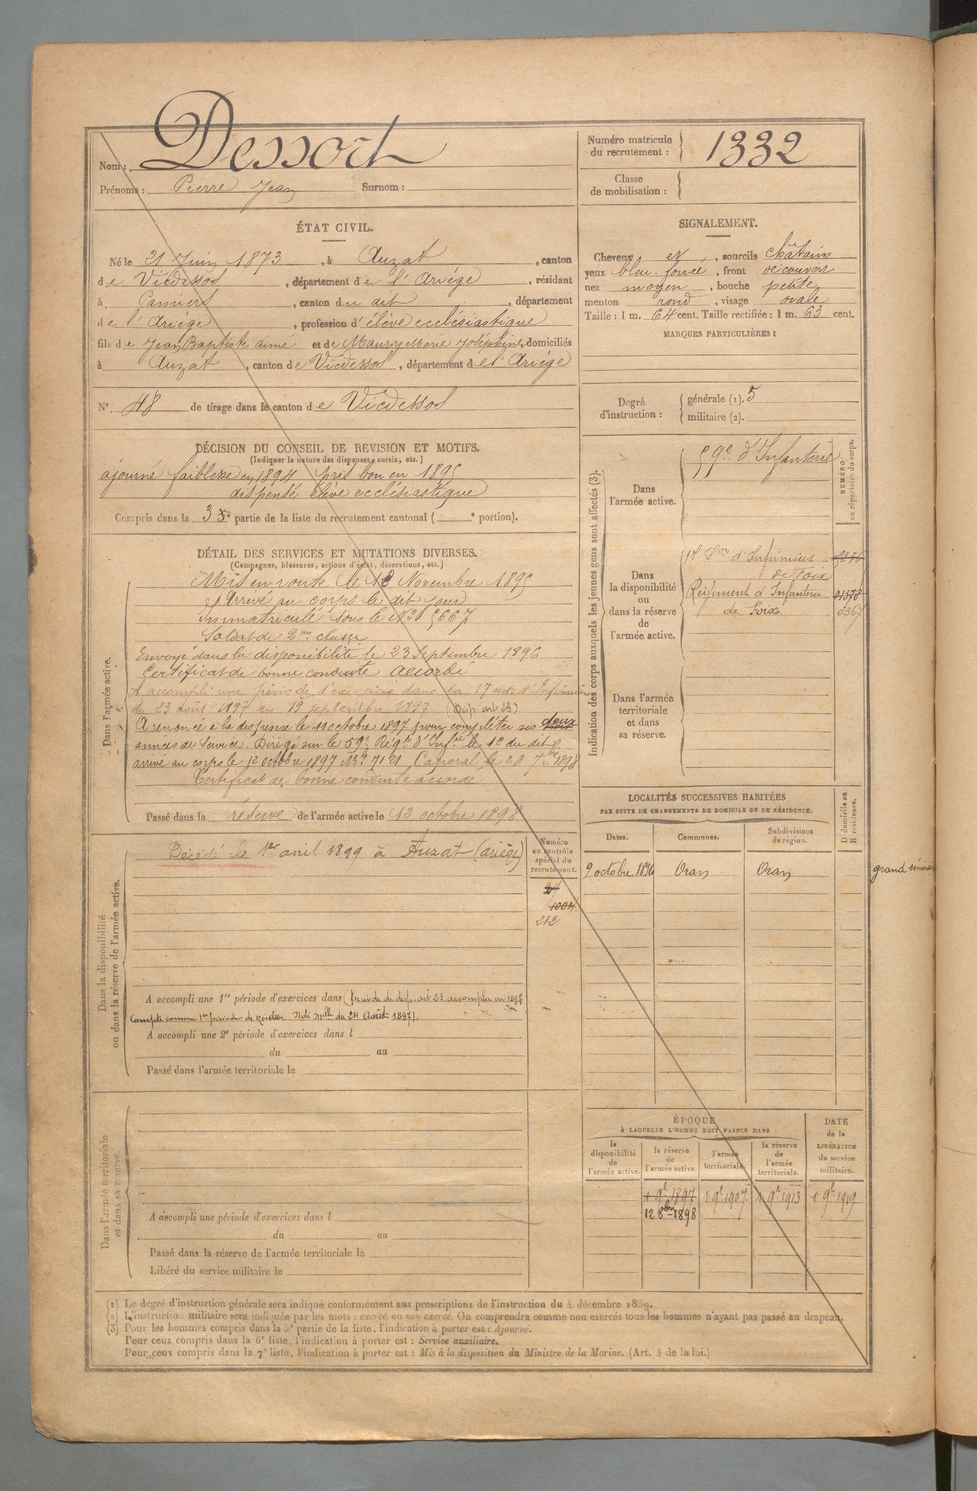 Nom : Dessort
Prénoms : Pierre Jean Surnom :
Numéro matricule
du recrutement : 1332
Classe
de mobilisation :
ÉTAT CIVIL.
Né le 21 Juin 1873, à Auzat, canton
de Vicdessos, département de l'Ariège, résidant
à Pamiers, canton du dit, département
de l'Ariège, profession d'élève ecclésiastique
fils de Jean Baptiste ainé et de Maury Marie Joséphine, domiciliés
à Auzat, canton de Vicdessos, département de l'Ariège
N° 48 de tirage dans le canton de Vicdessos
SIGNALEMENT.
Cheveux et, sourcils châtains
yeux bleu foncé, front découvert
nez moyen, bouche petite
menton rond, visage ovale
Taille : 1 m. 64 cent. Taille rectifiée : 1 m. 63 cent.
MARQUES PARTICULIÈRES :
Degré
d'instruction :
générale (1). 5
militaire (2).
DÉCISION DU CONSEIL DE REVISION ET MOTIFS.
(Indiquer la nature des dispenses, sursis, etc.)
ajourné faiblesse en 1894 pris bon en 1895
dispensé élève ecclésiastique
Compris dans la 3e partie de la liste du recrutement cantonal ( e portion).
DÉTAIL DES SERVICES ET MUTATIONS DIVERSES.
(Campagnes, blessures, actions d'éclat, décorations, etc.)
Dans l'armée active.
Mis en route le 12 Novembre 1895
Arrivé au corps le dit jour
Immatriculé sous le N° 5667
Soldat de 2me classe
Envoyé dans la disponibilité le 23 Septembre 1896
Certificat de bonne conduite accordé
A accompli une période d'exercices dans la 17e
du 23 août 1897 au 19 septembre 1897 (Disp. art 23)
A renoncé à la dispense le 11 octobre 1897 pour compléter ses deux
années de service. Dirigé sur le 59e Régt d'Infie le 12 du dit &
arrivé au corps le 12 octobre 1897 N° 7121 Caporal le 20 7bre 1898
Certificat de bonne conduite accordé
Passé dans la réserve de l'armée active le 13 octobre 1898
Indication des corps auxquels les jeunes gens sont affectés (3).
NUMÉRO
au répertoire du corps.
Dans
l'armée active.
59e d'Infanterie
Dans
la disponibilité
ou
dans la réserve
de l'armée active.
Son d'Infirmiers
de Foix
Régiment d'Infanterie 01378
de Foix
Dans l'armée
territoriale
et dans
sa réserve.
Dans la disponibilité
ou dans la réserve de l'armée active.
Décédé le 1er avril 1899 à Auzat (Ariège)
Numéro
au contrôle
spécial du
recrutement.
1004
212
A accompli une 1re période d'exercices dans (période de disp. art 23 accomplie en 1897
Compte comme 1re période de réserve. Note Mlle du 24 Août 1897).
A accompli une 2e période d'exercices dans l
du au
Passé dans l'armée territoriale le
LOCALITÉS SUCCESSIVES HABITÉES
PAR SUITE DE CHANGEMENTS DE DOMICILE OU DE RÉSIDENCE.
Dates. Communes. Subdivisions
de région.
D domicile ou
R résidence.
9 octobre 1896 Oran Oran
grand
Dans l'armée territoriale
et dans sa réserve.
A accompli une période d'exercices dans l
du au
Passé dans la réserve de l'armée territoriale le
Libéré du service militaire le
ÉPOQUE
À LAQUELLE L'HOMME DOIT PASSER DANS
la
disponibilité
de
l'armée active.
la réserve
de
l'armée active.
l'armée
territoriale.
la réserve
de
l'armée
territoriale.
DATE
de la
LIBÉRATION
du service
militaire.
1 9e 1897 1 9e 1907 1 9e 1913 1 9e 1919
12 8bre 1898
(1) Le degré d'instruction générale sera indiqué conformément aux prescriptions de l'instruction du 4 décembre 1889.
(2) L'instruction militaire sera indiquée par les mots : exercé ou non exercé. On comprendra comme non exercés tous les hommes n'ayant pas passé au drapeau.
(3) Pour les hommes compris dans la 5e partie de la liste, l'indication à porter est : Ajourné.
Pour ceux compris dans la 6e liste, l'indication à porter est : Service auxiliaire.
Pour ceux compris dans la 7e liste, l'indication à porter est : Mis à la disposition du Ministre de la Marine. (Art. 4 de la loi.)